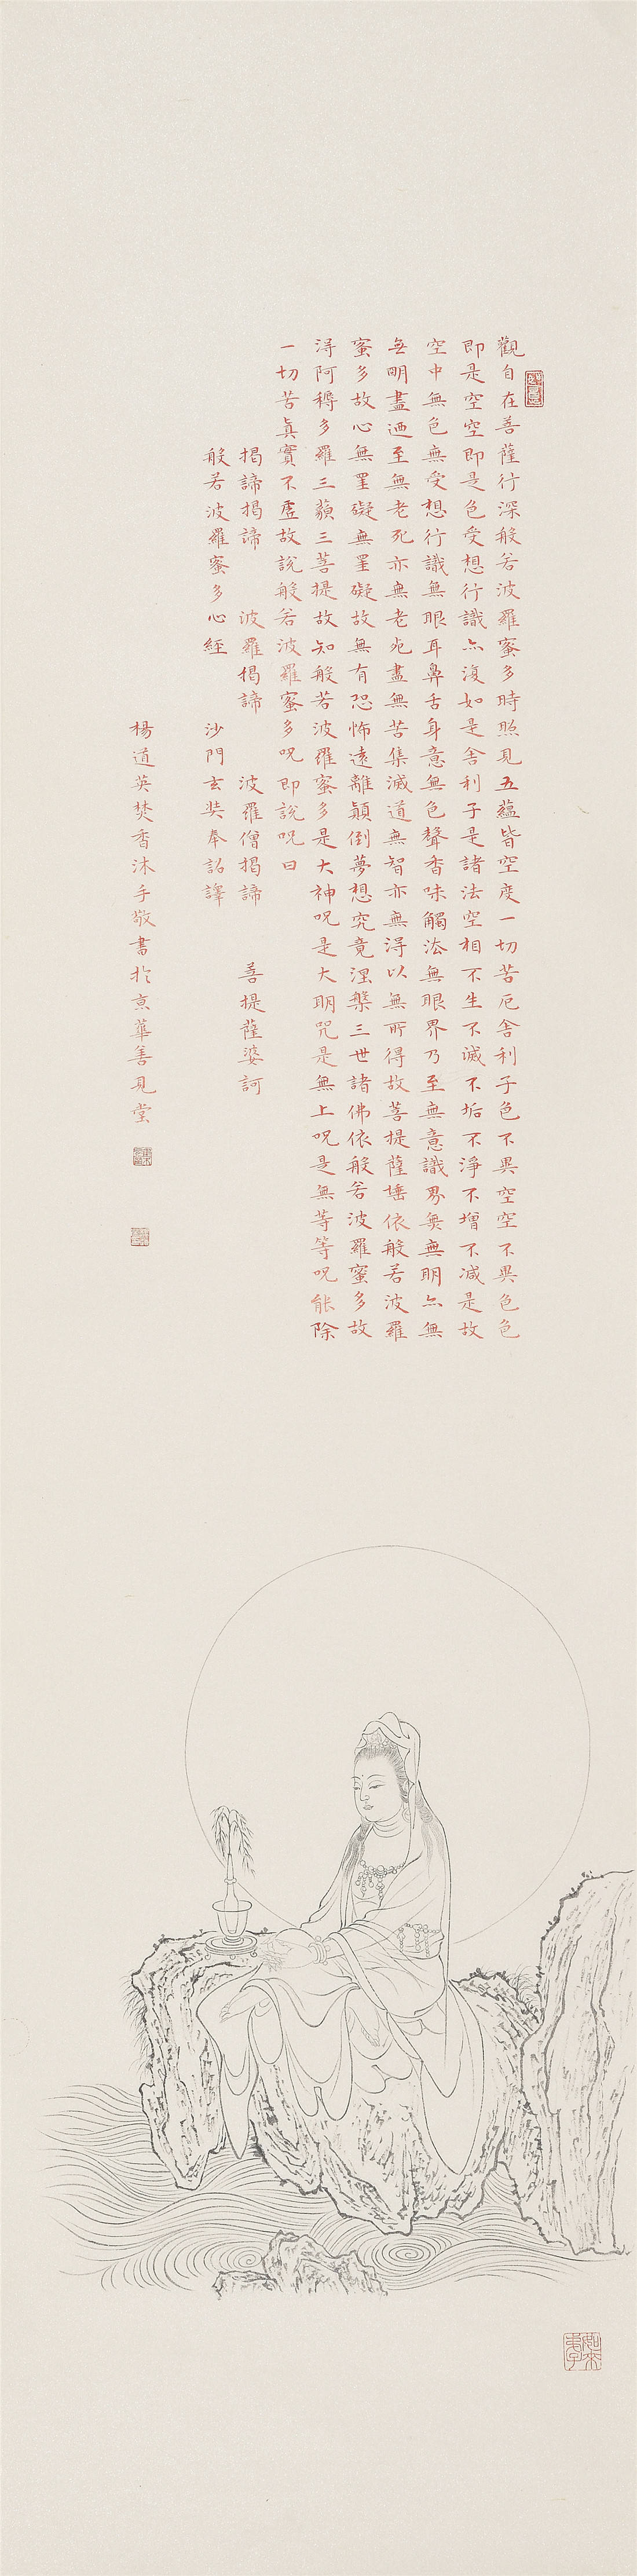 觀自在菩薩行深般若波羅蜜多時照見五蘊皆空度一切苦厄舍利子色不異空空不異色色
即是空空即是色受想行識亦復如是舍利子是諸法空相不生不滅不垢不淨不增不減是故
空中無色無受想行識無眼耳鼻舌身意無色聲香味觸法無眼界乃至無意識界無無明亦無
無明盡迺至無老死亦無老死盡無苦集滅道無智亦無得以無所得故菩提薩埵依般若波羅
蜜多故心無罣礙無罣礙故無有恐怖遠離顛倒夢想究竟涅槃三世諸佛依般若波羅蜜多故
得阿耨多羅三藐三菩提故知般若波羅蜜多是大神呪是大明咒是無上呪是無等等呪能除
一切苦真實不虛故說般若波羅蜜多呪即說呪曰
揭諦揭諦 波羅揭諦 波羅僧揭諦 菩提薩婆訶
般若波羅蜜多心經 沙門玄奘奉詔譯
楊道英焚香沐手敬書於京華善見堂
如來弟子